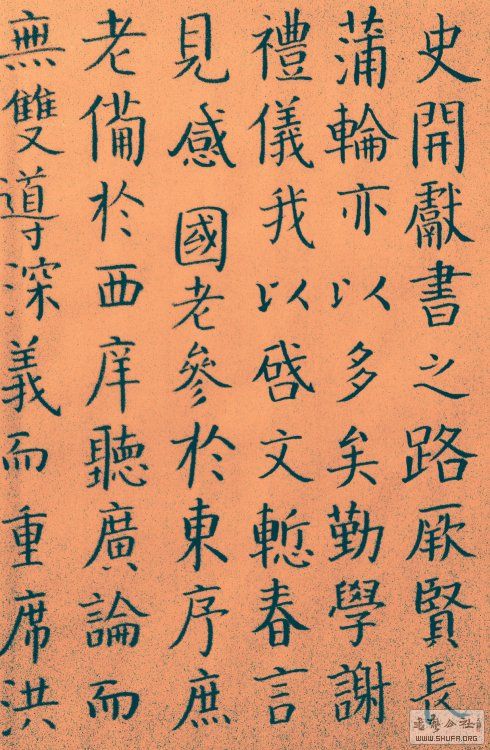 史開獻書之路厥賢長
蒲輪亦以多矣勤學謝
禮儀我以啓文慙春言
見感國老參於東序庶
老備於西庠聽廣論而
無雙導深義而重席洪
WWW.SHUFA.ORG